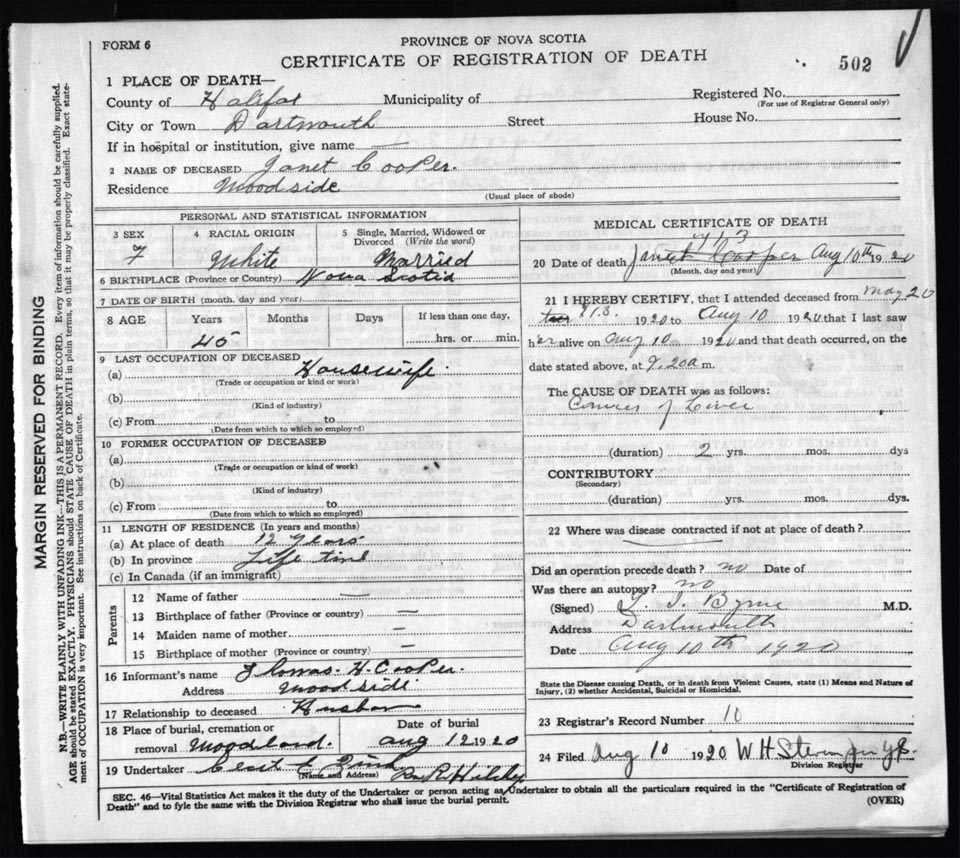 FORM 6
PROVINCE OF NOVA SCOTIA
CERTIFICATE OF REGISTRATION OF DEATH
502
1 PLACE OF DEATH—
County of Halifax Municipality of Registered No.
(For use of Registrar General only)
City or Town Dartmouth Street House No.
If in hospital or institution, give name —
2 NAME OF DECEASED Janet Cooper.
Residence Woodside
(Usual place of abode)
PERSONAL AND STATISTICAL INFORMATION
3 SEX 4 RACIAL ORIGIN 5 Single, Married, Widowed or Divorced (Write the word)
F White Married
6 BIRTHPLACE (Province or Country) Nova Scotia
7 DATE OF BIRTH (month, day and year)
8 AGE Years Months Days If less than one day,
45 hrs. or min.
9 LAST OCCUPATION OF DECEASED
(a) Housewife
(Trade or occupation or kind or work)
(b)
(Kind of industry)
(c) From to
(Date from which to which so employed)
10 FORMER OCCUPATION OF DECEASED
(a)
(Trade or occupation or kind of work)
(b)
(Kind of industry)
(c) From to
(Date from which to which so employed)
11 LENGTH OF RESIDENCE (In years and months)
(a) At place of death 12 years
(b) In province Life time
(c) In Canada (if an immigrant)
Parents
12 Name of father —
13 Birthplace of father (Province or country) —
14 Maiden name of mother —
15 Birthplace of mother (Province or country) —
16 Informant's name Thomas H Cooper.
Address Woodside
17 Relationship to deceased Husban
18 Place of burial, cremation or removal Woodland. Date of burial Aug 12 1920
19 Undertaker
(Name and Address)
MEDICAL CERTIFICATE OF DEATH
20 Date of death Janet Cooper Aug 10th 1920
(Month, day and year)
21 I HEREBY CERTIFY, that I attended deceased from May 20
1920 to Aug 10 1920 that I last saw
her alive on Aug 10 1920 and that death occurred, on
date stated above, at 9.20 a m.
The CAUSE OF DEATH was as follows:
of Liver
(duration) 2 yrs. mos. dys
CONTRIBUTORY
(Secondary)
(duration) yrs. mos. dys.
22 Where was disease contracted if not at place of death?
Did an operation precede death? no Date of
Was there an autopsy? no
(Signed) Byrne M.D.
Address Dartmouth
Date Aug 10th 1920
State the Disease causing Death, or in death from Violent Causes, state (1) Means and Nature of
Injury, (2) whether Accidental, Suicidal or Homicidal.
23 Registrar's Record Number 10
24 Filed Aug 10 1920 W H
Division Registrar
SEC. 46—Vital Statistics Act makes it the duty of the Undertaker or person acting as Undertaker to obtain all the particulars required in the "Certificate of Registration of
Death" and to fyle the same with the Division Registrar who shall issue the burial permit.
(OVER)
MARGIN RESERVED FOR BINDING
N.B.—WRITE PLAINLY WITH UNFADING INK—THIS IS A PERMANENT RECORD. Every item of information should be carefully supplied.
AGE should be stated EXACTLY. PHYSICIANS should STATE CAUSE OF DEATH in plain terms, so that it may be properly classified. Exact state-
ment of OCCUPATION is very important. See instructions on back of Certificate.